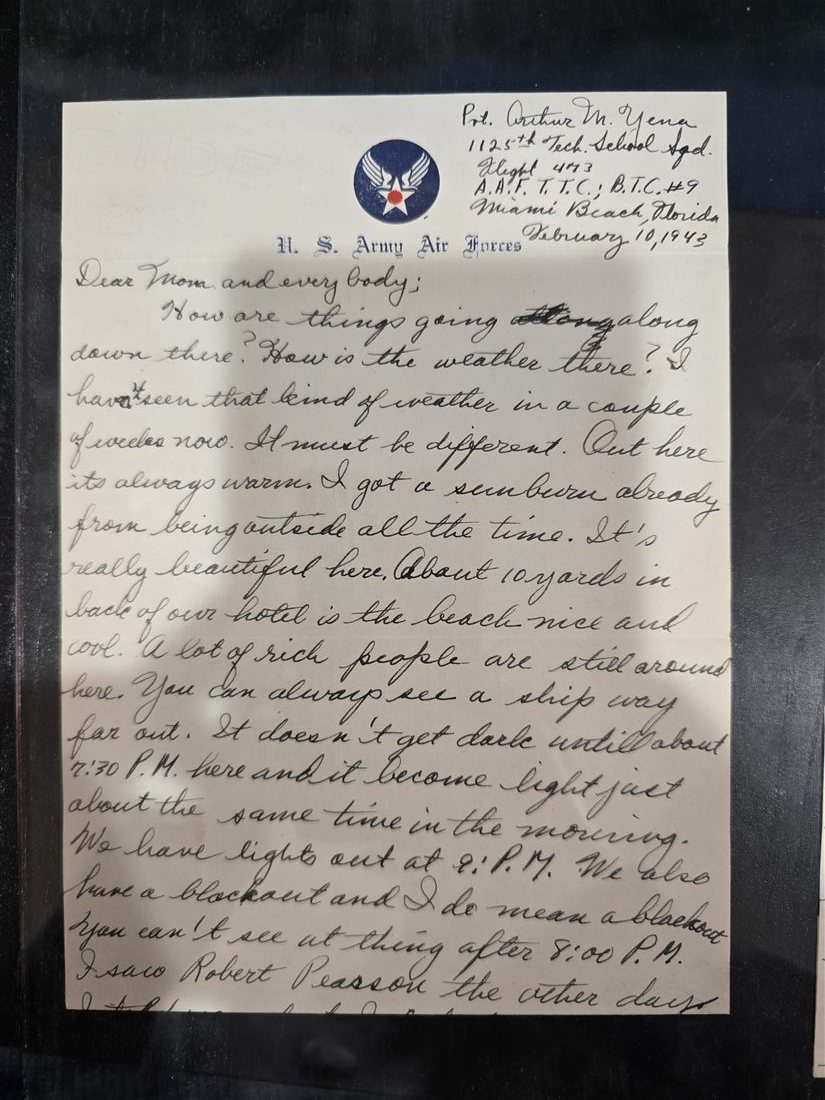 Pvt. Arthur M. Yena
1125th Tech. School Sqd.
Flight 473
A.A.F.T.T.C.; B.T.C. #9
Miami Beach, Florida
February 10, 1943
U. S. Army Air Forces
Dear Mom and every body;
How are things going along
down there? How is the weather there? I
haven't seen that kind of weather in a couple
of weeks now. It must be different. Out here
its always warm. I got a sunburn already
from being outside all the time. It's
really beautiful here. About 10 yards in
back of our hotel is the beach nice and
cool. A lot of rich people are still around
here. You can always see a ship way
far out. It doesn't get dark untill about
7:30 P.M. here and it become light just
about the same time in the morning.
We have lights out at 9: P.M. We also
have a blackout and I do mean a blackout
You can't see at thing after 8:00 P.M.
I saw Robert Pearson the other days